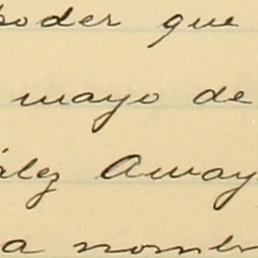 poder que
mayo de
ález Amay
a nombr